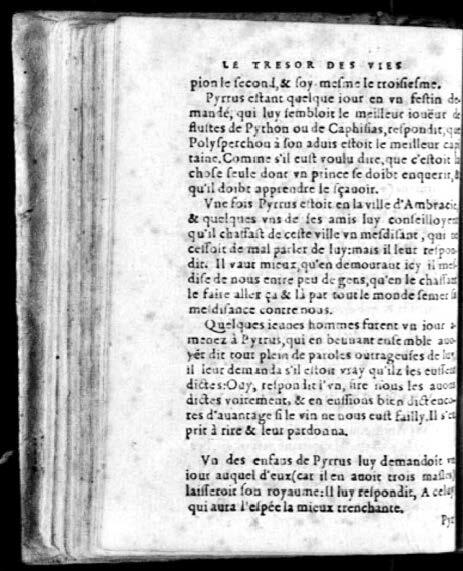 LE TRESOR DES VIES
pion le second, & soy-mesme le troisiesme.
Pyrrus estant quelque iour en vn festin de-
mandé, qui luy sembloit le meilleur ioueur de
flustes de Python ou de Caphisias, respondit, que
Polysperchon à son aduis estoit le meilleur cap
taine. Comme s'il eust voulu dire, que c'estoit la
chose seule dont vn prince se doibt enquerir, &
qu'il doibt apprendre le sçauoir.
Vne fois Pyrrus estoit en la ville d'Ambracie
& quelques vns de ses amis luy conseilloyent
qu'il chassast de ceste ville vn mesdisant, qui ne
cessoit de mal parler de luy: mais il leur respon-
dit. Il vaut mieux, qu'en demourant icy il mes-
dise de nous entre peu de gens, qu'en le chassant
le faire aller ça & là par tout le monde semer sa
mesdisance contre nous.
Quelques ieunes hommes furent vn iour a-
menez à Pyrrus, qui en beuuant ensemble auo-
yēt dit tout plein de paroles outrageuses de luy,
il leur demanda s'il estoit vray qu'ilz les eussent
dictes: Ouy, respondit l'vn, sire nous les auons
dictes voirement, & en eussions bien dict enco-
res d'auantage si le vin ne nous eust failly. Il s'en
prit à rire & leur pardonna.
Vn des enfans de Pyrrus luy demandoit vn
iour auquel d'eux (car il en auoit trois masles)
laisseroit son royaume: Il luy respondit, A celuy
qui aura l'espée la mieux trenchante.
Pyr